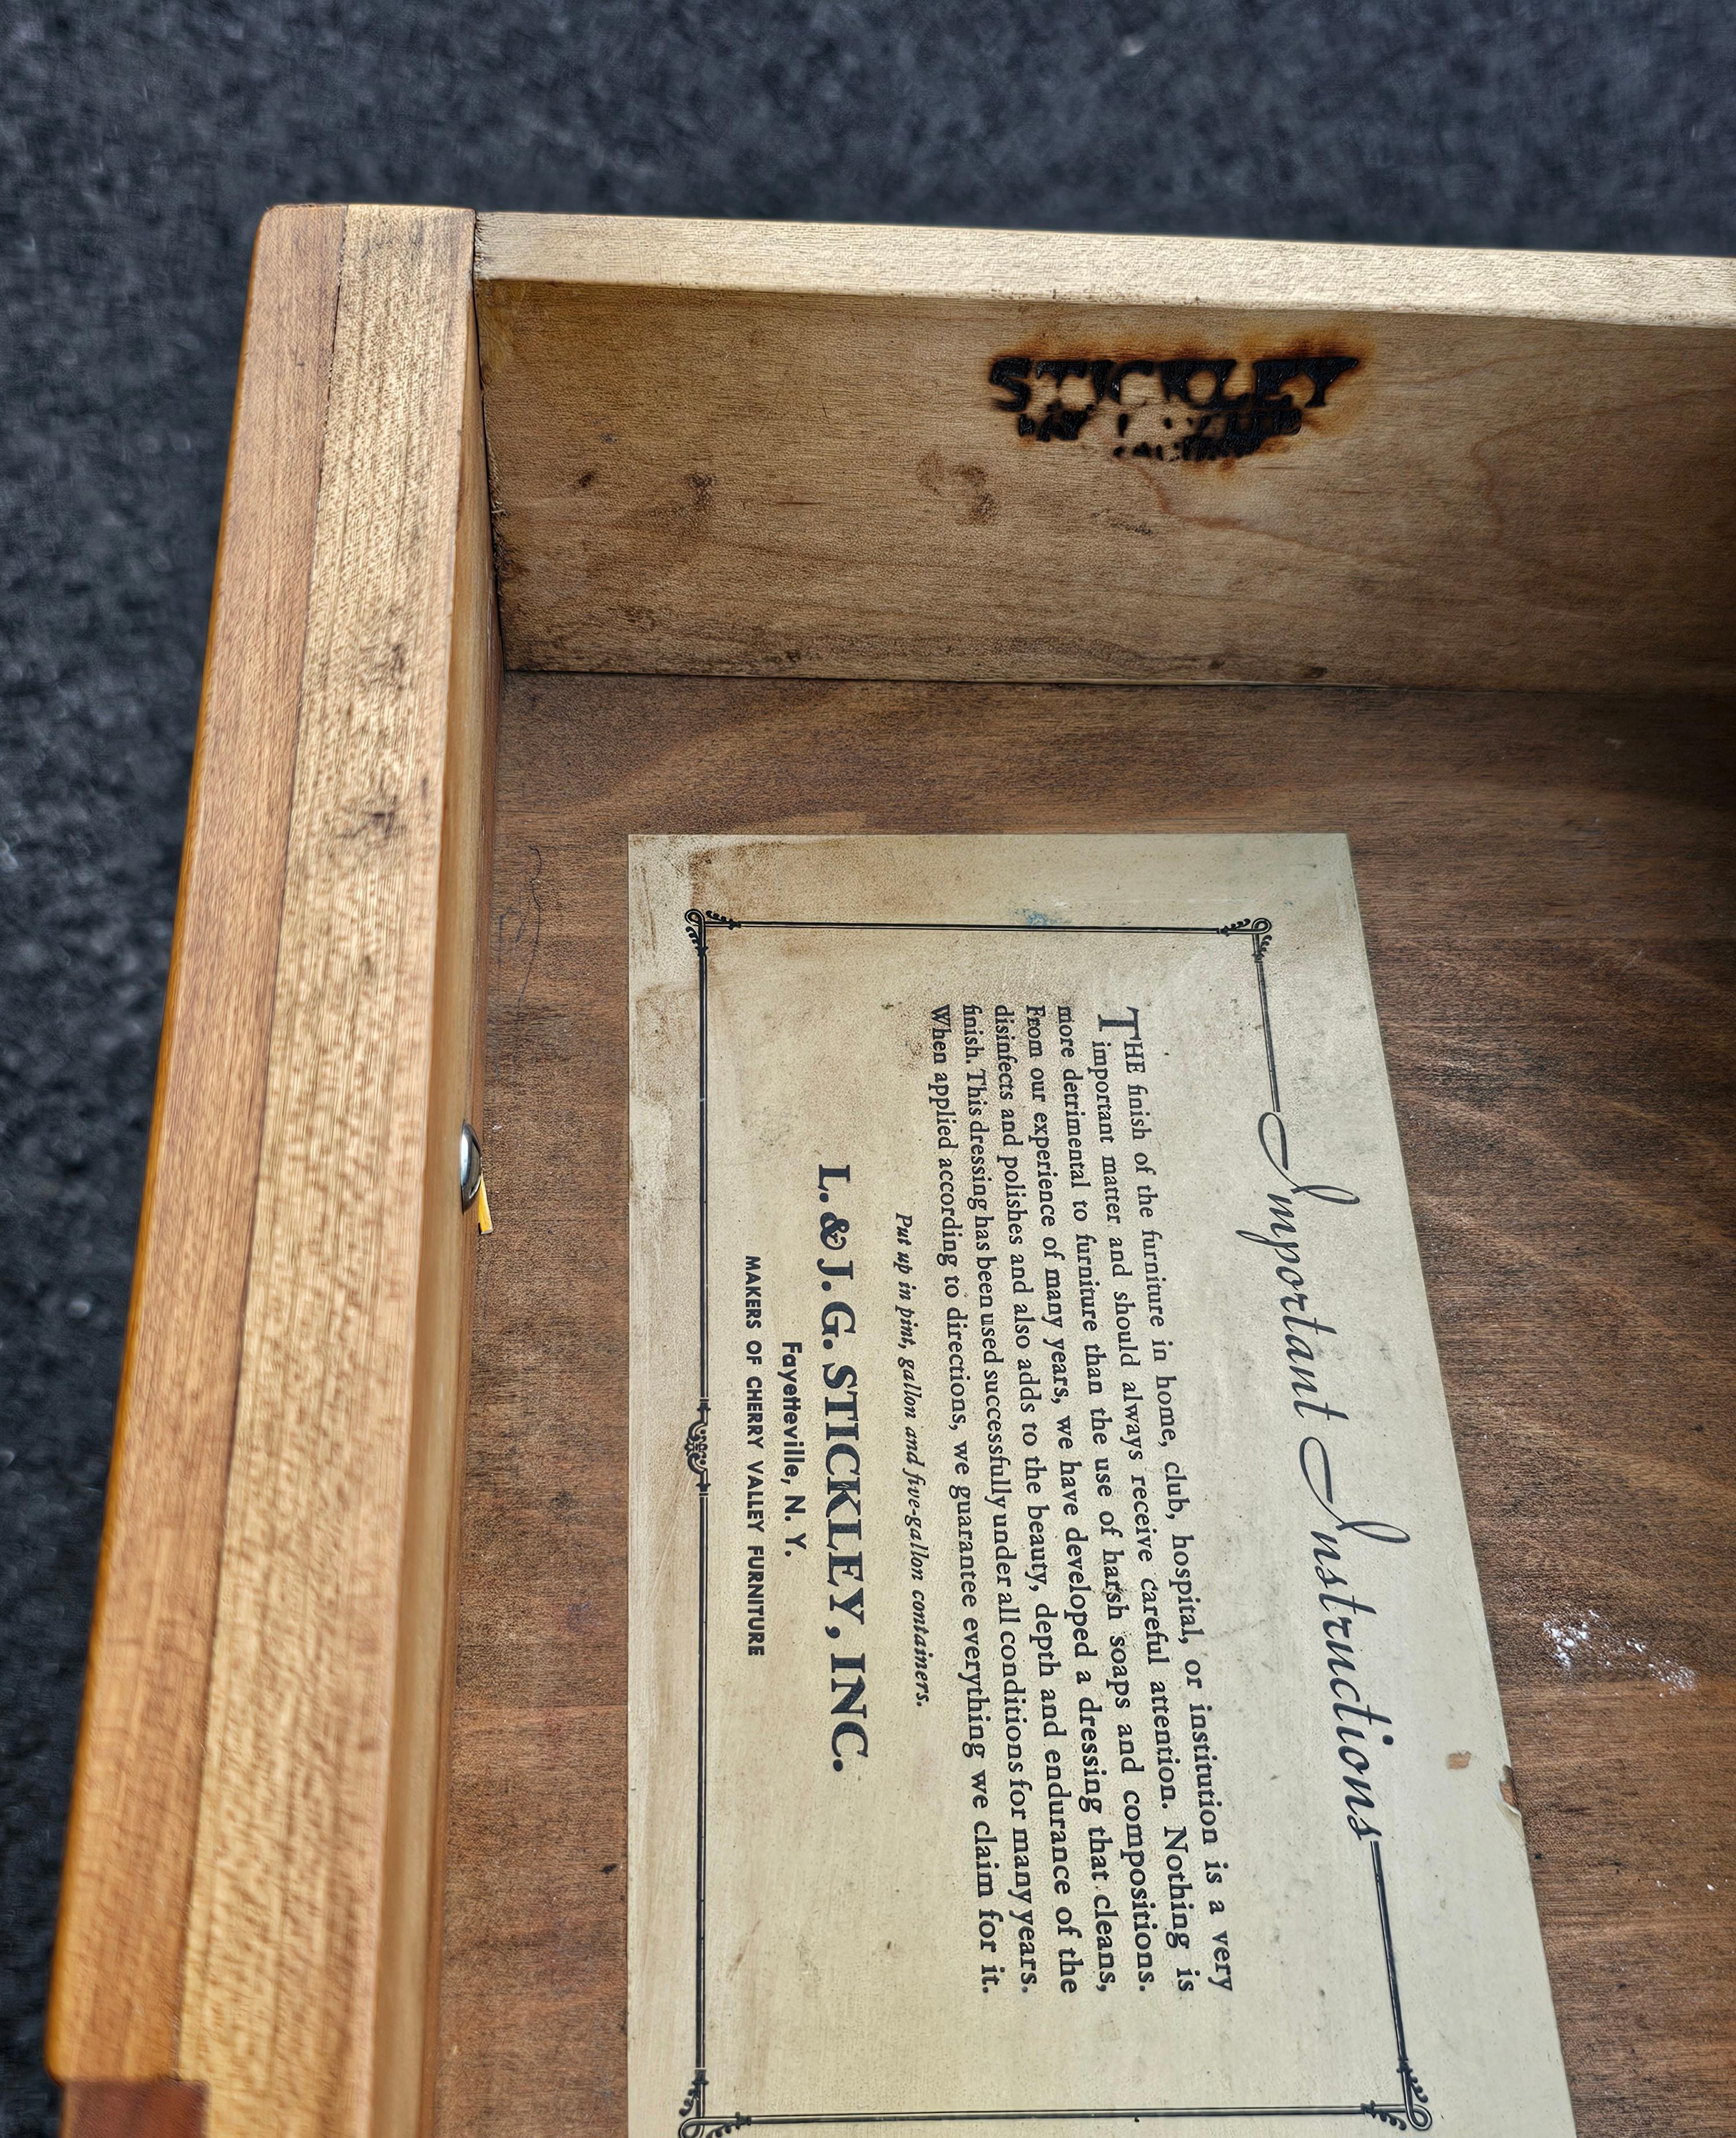 STICKLEY
Important Instructions
THE finish of the furniture in home, club, hospital, or institution is a very
important matter and should always receive careful attention. Nothing is
more detrimental to furniture than the use of harsh soaps and compositions.
From our experience of many years, we have developed a dressing that cleans,
disinfects and polishes and also adds to the beauty, depth and endurance of the
finish. This dressing has been used successfully under all conditions for many years.
When applied according to directions, we guarantee everything we claim for it.
Put up in pint, gallon and five-gallon containers.
L. & J. G. STICKLEY, INC.
Fayetteville, N. Y.
MAKERS OF CHERRY VALLEY FURNITURE